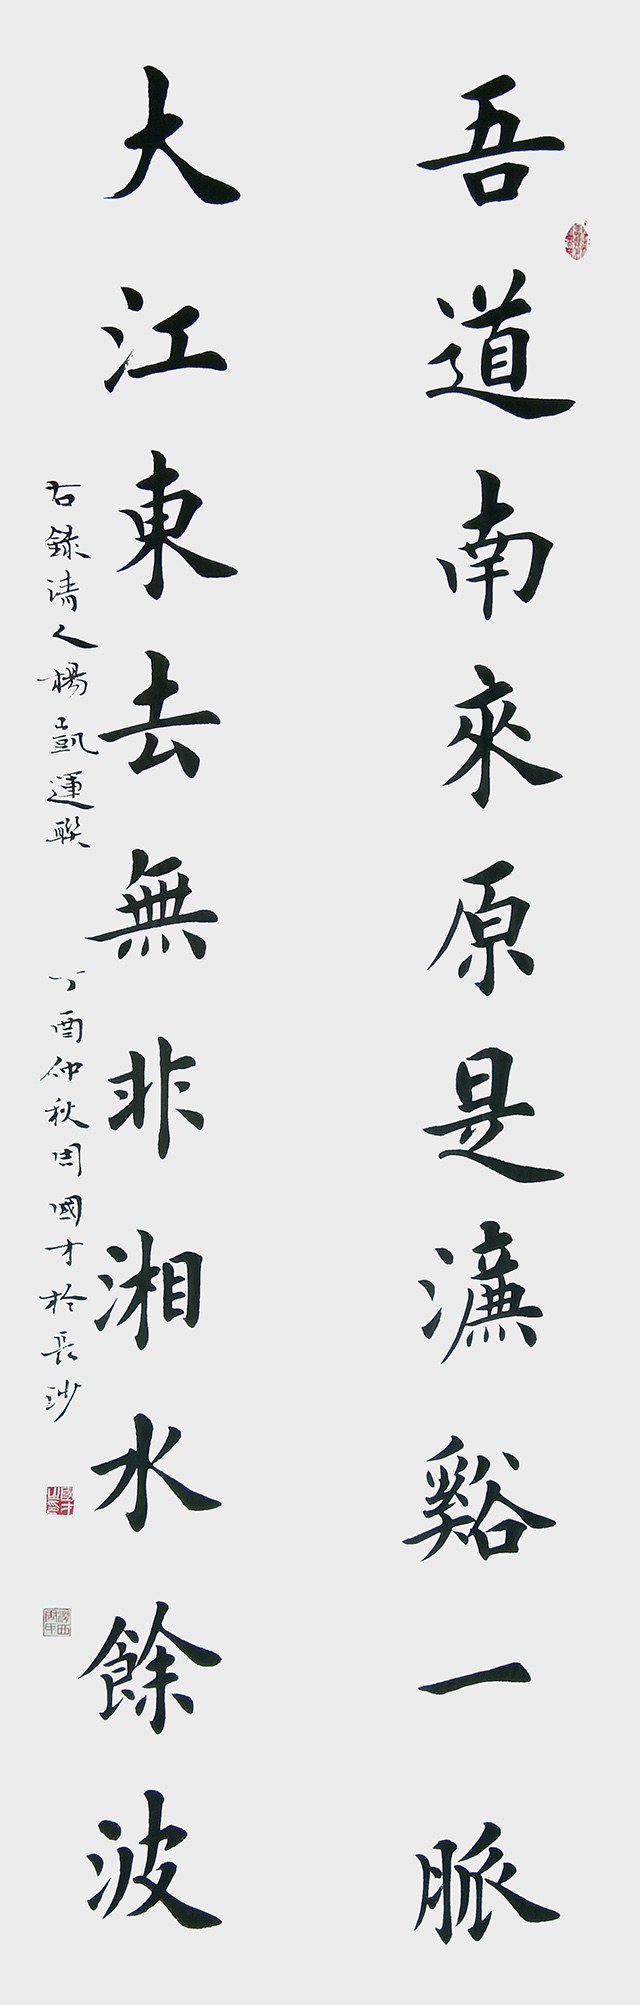 吾道南來原是濂谿一脈
大江東去無非湘水餘波
右録清人楊凱運聯 丁酉仲秋周國才於長沙